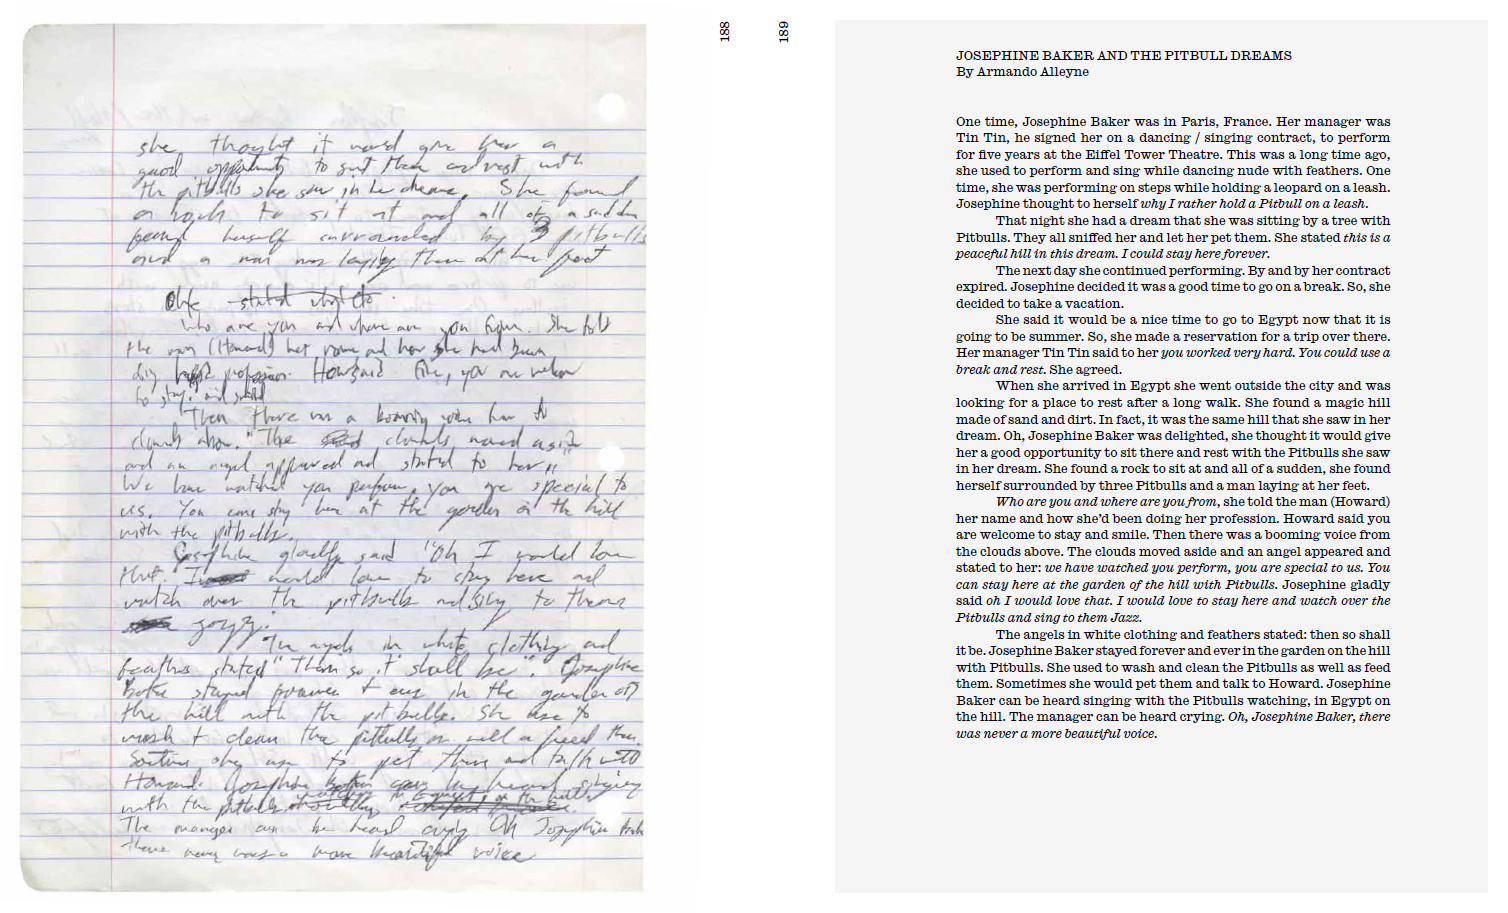 she thought it would give her a
good opportunity to sit there and rest with
the pitbulls she saw in her dreams. She found
a rock to sit at and all of a sudden
found herself surrounded by 3 pitbulls
and a man was laying there at her feet
stated
who are you and where are you from. She told
the man (Howard) her name and how she had been
profession. Howard said you are welcome
to stay. and
Then there was a booming voice from the
clouds above. "The clouds moved aside
and an angel appeared and stated to her"
We have watched you perform, you are special to
us. You can stay here at the garden on the hill
with the pitbulls.
Josephine gladly said "Oh I would love
that. I would love to stay here and
watch over the pitbulls and sing to them
The angels in white clothing and
feathers stated "Then so it shall be". Josephine
Baker stayed forever + ever in the garden on
the hill with the pitbulls. She use to
wash + clean the pitbulls as well as feed them.
use to pet them and talk to
Howard. Josephine Baker can be heard singing
with the pitbulls watching in Egypt on the hill
The manager can be heard crying "Oh Josephine
there never was a more beautiful voice
188
189
JOSEPHINE BAKER AND THE PITBULL DREAMS
By Armando Alleyne
One time, Josephine Baker was in Paris, France. Her manager was
Tin Tin, he signed her on a dancing / singing contract, to perform
for five years at the Eiffel Tower Theatre. This was a long time ago,
she used to perform and sing while dancing nude with feathers. One
time, she was performing on steps while holding a leopard on a leash.
Josephine thought to herself why I rather hold a Pitbull on a leash.
That night she had a dream that she was sitting by a tree with
Pitbulls. They all sniffed her and let her pet them. She stated this is a
peaceful hill in this dream. I could stay here forever.
The next day she continued performing. By and by her contract
expired. Josephine decided it was a good time to go on a break. So, she
decided to take a vacation.
She said it would be a nice time to go to Egypt now that it is
going to be summer. So, she made a reservation for a trip over there.
Her manager Tin Tin said to her you worked very hard. You could use a
break and rest. She agreed.
When she arrived in Egypt she went outside the city and was
looking for a place to rest after a long walk. She found a magic hill
made of sand and dirt. In fact, it was the same hill that she saw in her
dream. Oh, Josephine Baker was delighted, she thought it would give
her a good opportunity to sit there and rest with the Pitbulls she saw
in her dream. She found a rock to sit at and all of a sudden, she found
herself surrounded by three Pitbulls and a man laying at her feet.
Who are you and where are you from, she told the man (Howard)
her name and how she'd been doing her profession. Howard said you
are welcome to stay and smile. Then there was a booming voice from
the clouds above. The clouds moved aside and an angel appeared and
stated to her: we have watched you perform, you are special to us. You
can stay here at the garden of the hill with Pitbulls. Josephine gladly
said oh I would love that. I would love to stay here and watch over the
Pitbulls and sing to them Jazz.
The angels in white clothing and feathers stated: then so shall
it be. Josephine Baker stayed forever and ever in the garden on the hill
with Pitbulls. She used to wash and clean the Pitbulls as well as feed
them. Sometimes she would pet them and talk to Howard. Josephine
Baker can be heard singing with the Pitbulls watching, in Egypt on
the hill. The manager can be heard crying. Oh, Josephine Baker, there
was never a more beautiful voice.